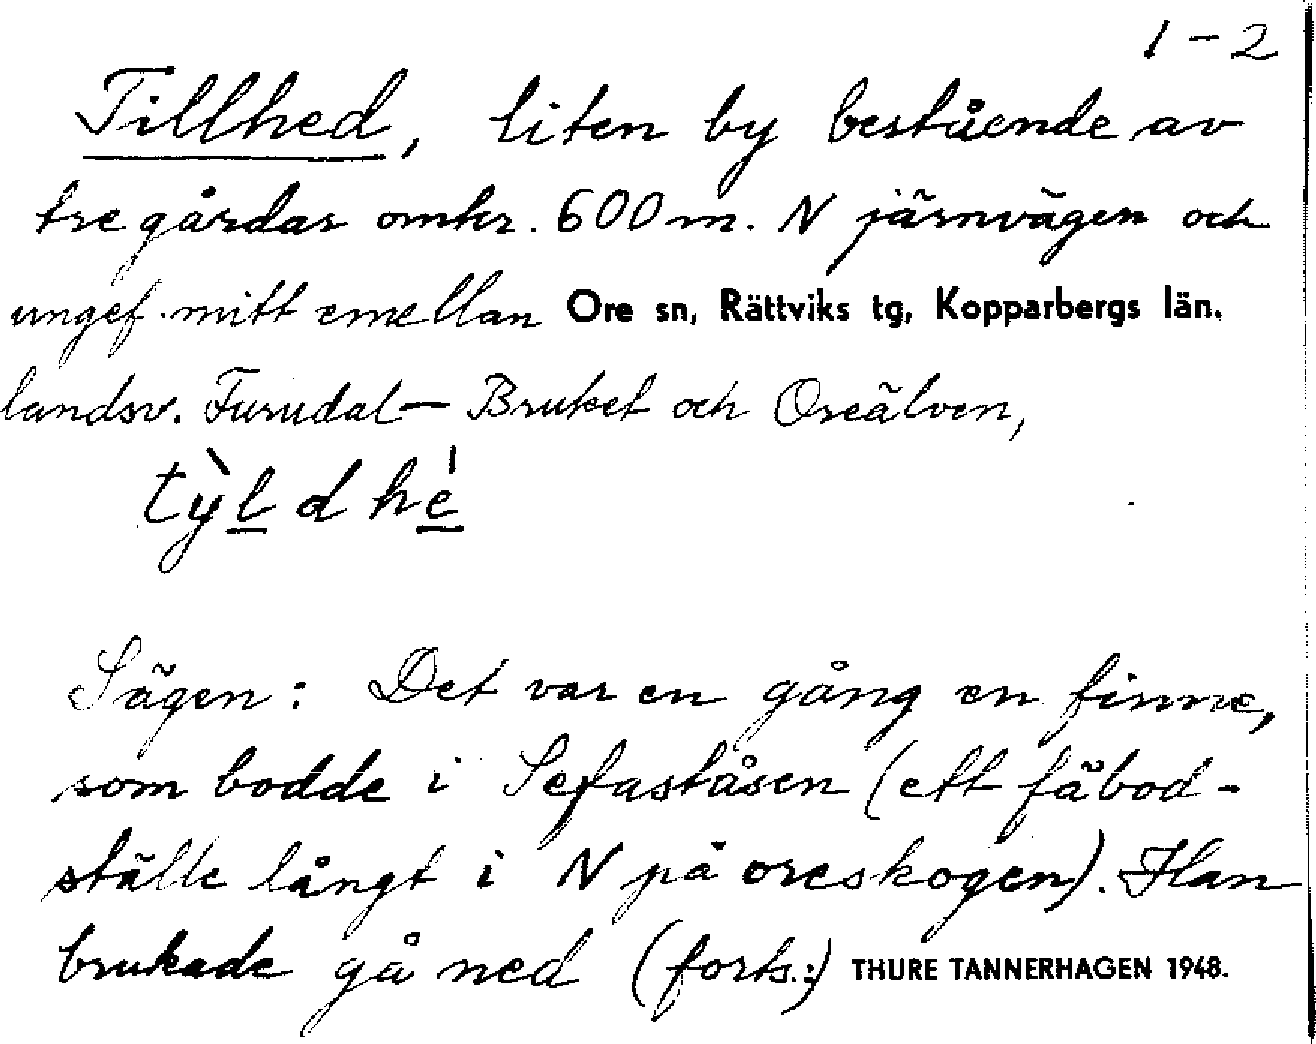 1-2
Tillhed, liten by bestående av
tre gårdar omkr. 600 m. N järnvägen och
ungef. mitt emellan Ore sn, Rättviks tg, Kopparbergs län.
landsv. Furudal — Bruket och Oreälven,
tỳl d hé
Sägen: Det var en gång en finne,
som bodde i Sefaståsen (ett fäbod-
ställe långt i N på oreskogen). Han
brukade gå ned (forts.:) THURE TANNERHAGEN 1948.